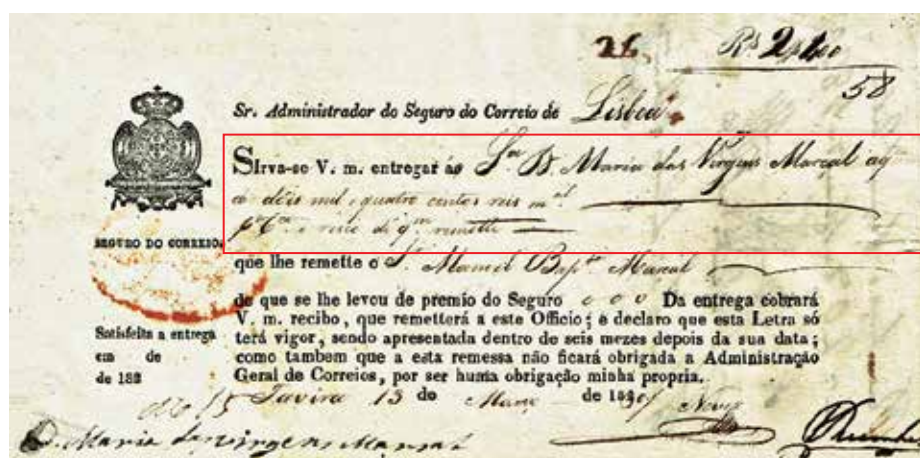 26. Rs 2400
58
Sr. Administrador do Seguro do Correio de Lisboa
SIrva-se V. m. entregar ás Sra D. Maria das Virgens Marçal
a dois mil e quatro centos reis ml
pr Cta e risco de qm remette
SEGURO DO CORREIO.
que lhe remette o Sr. Manoel Bapta Marçal
de que se lhe levou de premio do Seguro 000 Da entrega cobrará
V. m. recibo, que remetterá a este Officio; e declaro que esta Letra só
Satisfeita a entrega
terá vigor, sendo apresentada dentro de seis mezes depois da sua data;
em de
como tambem que a esta remessa não ficará obrigada a Administração
de 182
Geral de Correios, por ser huma obrigação minha propria.
Tavira 13 de Março de 18
D. Maria das Virgens Marsal